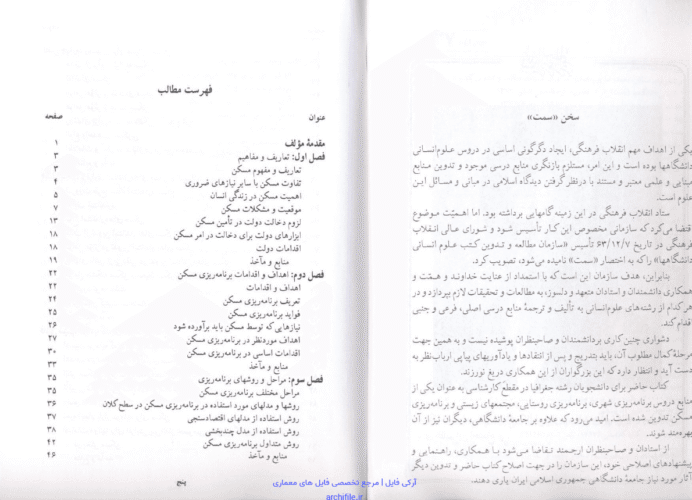 سخن «سمت»
یکی از اهداف مهم انقلاب فرهنگی، ایجاد دگرگونی اساسی در دروس علوم‌انسانی
دانشگاهها بوده است و این امر، مستلزم بازنگری منابع درسی موجود و تدوین منابع
مبنایی و علمی معتبر و مستند با درنظر گرفتن دیدگاه اسلامی در مبانی و مسائل این
علوم است.
ستاد انقلاب فرهنگی در این زمینه گامهایی برداشته بود. اما اهمیّت موضوع
اقتضا می‌کرد که سازمانی مخصوص این کار تأسیس شود و شورای عالی انقلاب
فرهنگی در تاریخ ۶۳/۱۲/۷ تأسیس «سازمان مطالعه و تدوین کتب علوم انسانی
دانشگاهها» را که به اختصار «سمت» نامیده می‌شود، تصویب کرد.
بنابراین، هدف سازمان این است که با استمداد از عنایت خداوند و همّت و
همکاری دانشمندان و استادان متعهد و دلسوز، به مطالعات و تحقیقات لازم بپردازد و در
هرکدام از رشته‌های علوم‌انسانی به تألیف و ترجمهٔ منابع درسی اصلی، فرعی و جنبی
اقدام کند.
دشواری چنین کاری بردانشمندان و صاحبنظران پوشیده نیست و به همین جهت
مرحلهٔ کمال مطلوب آن، باید بتدریج و پس از انتقادها و یادآوریهای پیاپی ارباب‌نظر به
دست آید و انتظار دارد که این بزرگواران از این همکاری دریغ نورزند.
کتاب حاضر برای دانشجویان رشته جغرافیا در مقطع کارشناسی به عنوان یکی از
منابع دروس برنامه‌ریزی شهری، برنامه‌ریزی روستایی، مجتمعهای زیستی و برنامه‌ریزی
مسکن تدوین شده است. امید می‌رود که علاوه بر جامعهٔ دانشگاهی، دیگران نیز از آن
بهره‌مند شوند.
از استادان و صاحبنظران ارجمند تقاضا می‌شود با همکاری، راهنمایی و
پیشنهادهای اصلاحی خود، این سازمان را در جهت اصلاح کتاب حاضر و تدوین دیگر
آثار مورد نیاز جامعهٔ دانشگاهی جمهوری اسلامی ایران یاری دهند.
فهرست مطالب
عنوان صفحه
مقدمهٔ مؤلف ۱
فصل اول: تعاریف و مفاهیم ۳
تعاریف و مفهوم مسکن ۳
تفاوت مسکن با سایر نیازهای ضروری ۴
اهمیت مسکن در زندگی انسان ۵
موقعیت و مشکلات مسکن ۷
لزوم دخالت دولت در تأمین مسکن ۱۳
ابزارهای دولت برای دخالت در امر مسکن ۱۸
اقدامات دولت ۱۸
منابع و مآخذ ۱۹
فصل دوم: اهداف و اقدامات برنامه‌ریزی مسکن ۲۲
اهداف و اقدامات ۲۲
تعریف برنامه‌ریزی مسکن ۲۴
فواید برنامه‌ریزی مسکن ۲۵
نیازهایی که توسط مسکن باید برآورده شود ۲۶
اهداف موردنظر در برنامه‌ریزی مسکن ۲۷
اقدامات اساسی در برنامه‌ریزی مسکن ۳۰
منابع و مآخذ ۳۳
فصل سوم: مراحل و روشهای برنامه‌ریزی ۳۵
مراحل مختلف برنامه‌ریزی مسکن ۳۵
روشها و مدلهای مورد استفاده در برنامه‌ریزی مسکن در سطح کلان ۳۶
روش استفاده از مدلهای اقتصادسنجی ۳۷
روش استفاده از مدل چندبخشی ۳۸
روش متداول برنامه‌ریزی مسکن ۴۲
منابع و مآخذ ۴۶
پنج
آرکی فایل | مرجع تخصصی فایل های معماری
archifile.ir